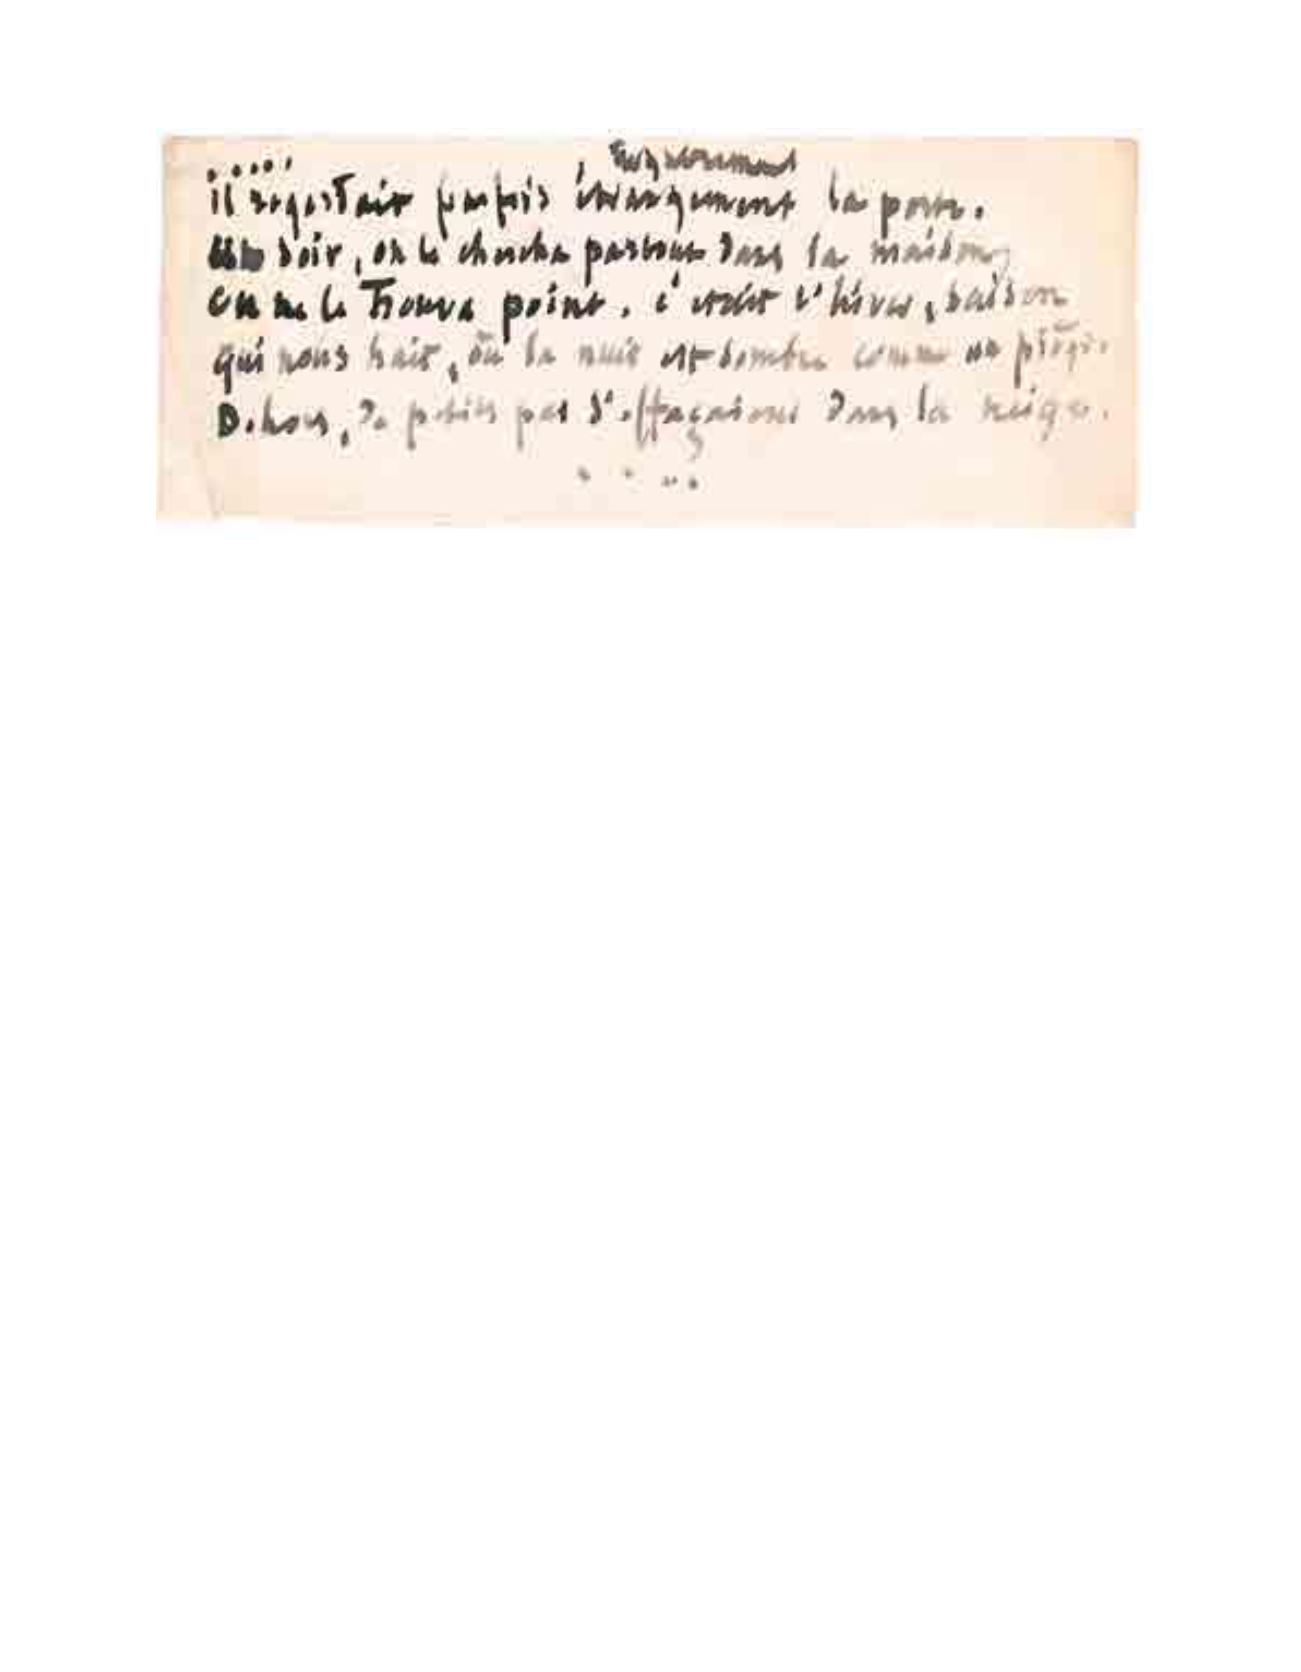 .....
il regardait parfois étrangement la porte.
Un soir, on le chercha partout dans la maison,
on ne le trouva point. c'était l'hiver, saison
qui nous hait, où la nuit est sombre comme un piège.
Dehors, de petits pas s'effaçaient dans la neige.
....